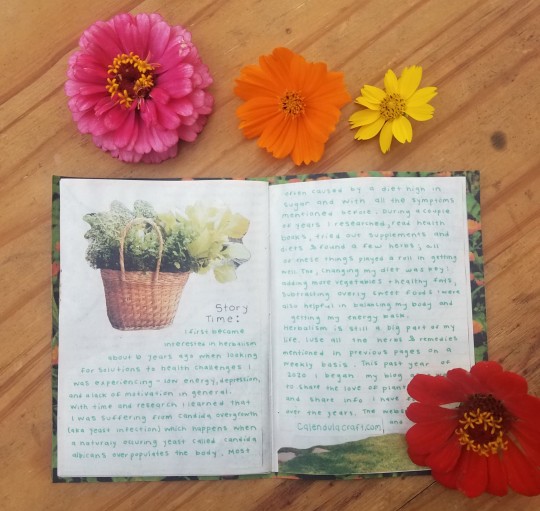 Story
Time:
I first became
interested in herbalism
about 6 years ago when looking
for solutions to health challenges I
was experiencing - low energy, depression,
and a lack of motivation in general.
With time and research I learned that
I was suffering from candida overgrowth
(aka yeast infection) which happens when
a naturaly occuring yeast called candida
albicans overpopulates the body. Most
often caused by a diet high in
sugar and with all the symptoms
mentioned before. During a couple
of years I researched, read health
books, tried out supplements and
diets & found a few herbs, all
of these things played a roll in getting
well. Tho, changing my diet was key!
adding more vegetables + healthy fats,
subtracting overly sweet foods. were
also helpful in balancing my body and
getting my energy back.
Herbalism is still a big part of my
life. I use all the herbs & remedies
mentioned in previous pages on a
weekly basis. This past year of
2020 I began my blog
to share the love of plant
and share info I have
over the years. The
Calendulacraft.com, and